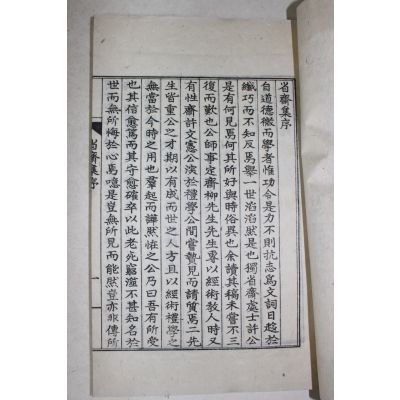 省齋集序
自道德微而學者惟功令是力不則抗志爲文詞日趍於
纖巧而不知反焉擧一世滔滔然是也獨省齋處士許公
是有何見焉何其所好與時俗異也余讀其稿未嘗不三
復而歎也公師事定齋柳先生先生專以經術敎人時又
有性齋許文憲公演於禮學公間嘗執見而請質焉二先
生皆重公之才期以有成而世之人方且以經術禮學之
無當於今時之用也羣起而譁然恠之公乃曰吾有所受
也其信愈篤而其守愈確卒以此老死窮 不甚知名於
世而無所悔於心焉噫是豈無所見而能然豈亦非傳所
省齋集序 一